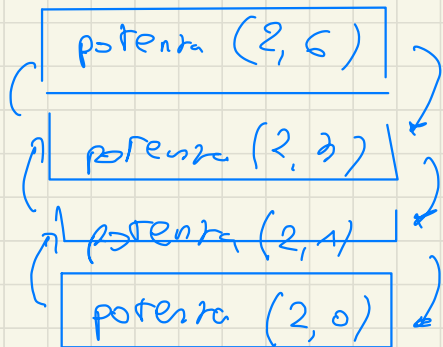 potenza (2, 6)
potenza (2, 3)
potenza (2, 1)
potenza (2, 0)